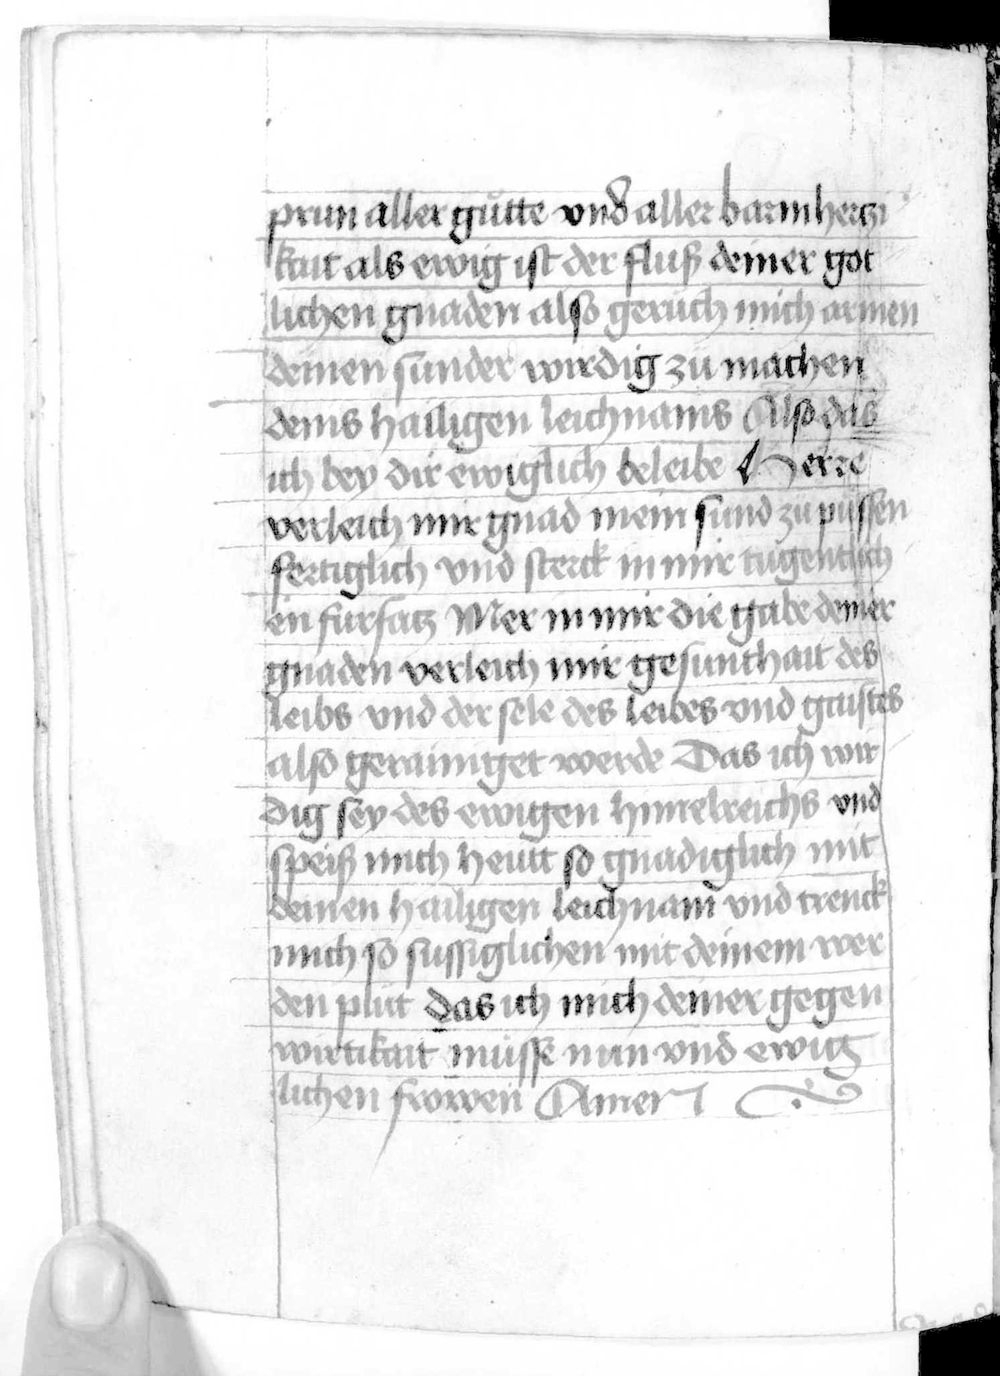 prun aller gütte vnd aller barmhertzi
kait als ewig ist der fluß deiner got
lichen gnaden also geruch mich armen
deinen sunder wirdig zü machen
deins hailigen leichnams Also das
ich bey dir ewiglich beleibe Herre
verleich mir gnad mein sund zü püssen
fertiglich vnd sterck in mir tugentlich
en fursatz Mer in mir die gabe deiner
gnaden verleich mir gesunthait des
leibs vnd der sele des leibes vnd gaistes
also gerainiget werde Das ich wir
dig sey des ewigen himelreichs vnd
speiß mich heuit so gnadiglich mit
deinen hailigen leichnam vnd trenck
mich so sussiglichen mit deinem wer
den plüt das ich mich deiner gegen
wirtikait müsse nun vnd ewig
lichen frowen Amen